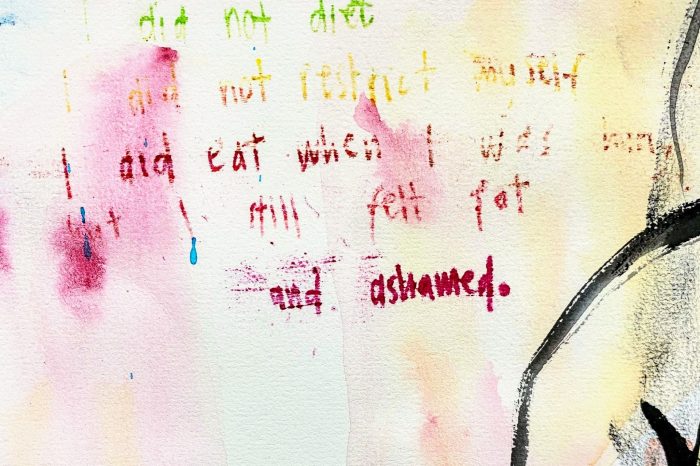 I did not diet
I did not restrict myself
I did eat when I was
but I still felt fat
and ashamed.